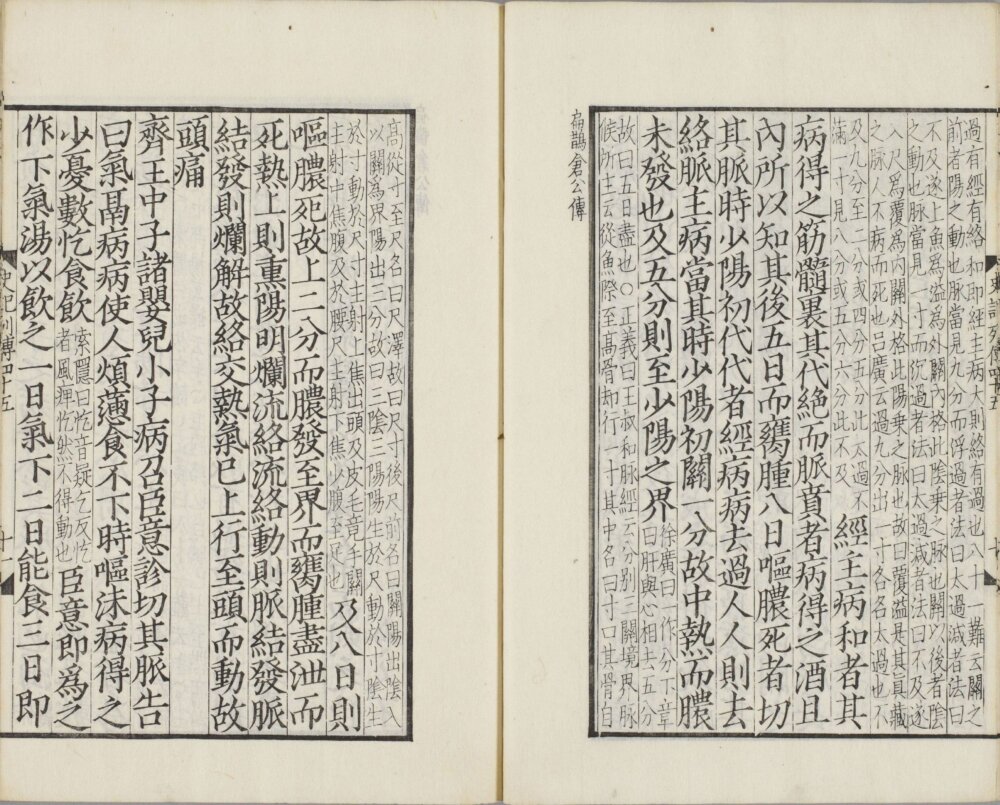 過有經有絡和即經主病大則絡有過也八十一難云關之
前者陽之動也脉當見九分而浮過者法曰太過減者法曰
不及遂上魚爲溢爲外關內格此陰乗之脉也關以後者陰
之動也脉當見一寸而沉過者法曰太過減者法曰不及遂
入尺爲覆爲內關外格此陽乗之脉也故曰覆溢是其眞藏
之脉人不病而死也呂廣云過九分出一寸各名太過也不
及九分至二分或四分五分此太過不
滿一寸見八分或五分六分此不及
經主病和者其
病得之筋髓裏其代絕而脈賁者病得之酒且
內所以知其後五日而臃腫八日嘔膿死者切
其脈時少陽初代代者經病病去過人人則去
絡脈主病當其時少陽初關一分故中熱而膿
未發也及五分則至少陽之界
徐廣曰一作分下章
曰肝與心相去五分
故曰五日盡也○正義曰王叔和脉經云分别三關境界脉
候所主云從魚際至高骨却行一寸其中名曰寸口其骨自
扁鵲倉公傳
高從寸至尺名曰尺澤故曰尺寸後尺前名曰關陽出陰入
以關爲界陽出三分故曰三陰三陽陽生於尺動於寸陰生
於寸動於尺寸主射上焦出頭及皮毛竟手關
主射中焦腹及於腰尺主射下焦少腹至足也
及八日則
嘔膿死故上二分而膿發至界而臃腫盡泄而
死熱上則熏陽明爛流絡流絡動則脈結發脈
結發則爛解故絡交熱氣已上行至頭而動故
頭痛
齊王中子諸嬰兒小子病召臣意診切其脈告
曰氣鬲病病使人煩懣食不下時嘔沫病得之
少憂數忔食飲
索隱曰忔音疑乞反忔
者風痺忔然不得動也
臣意即爲之
作下氣湯以飲之一日氣下二日能食三日即
史記列傳四十五
十一